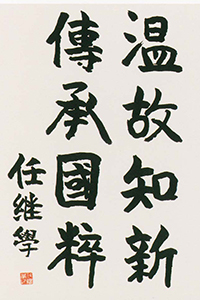 温故知新
傳承國粹
任继學